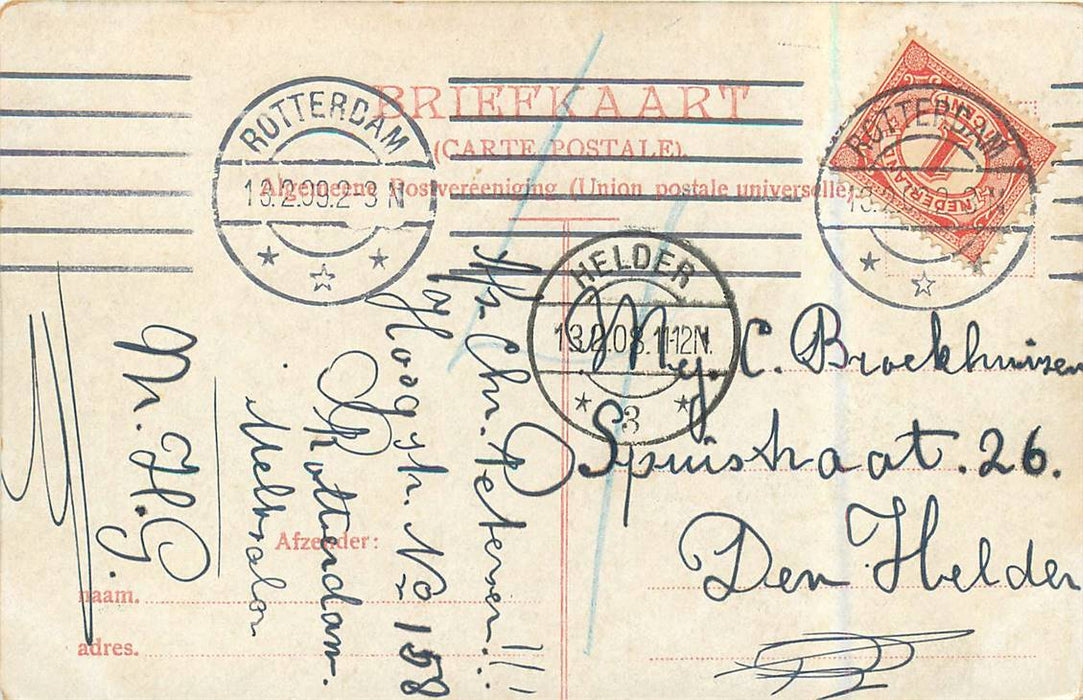 BRIEFKAART
(CARTE POSTALE).
Algemeene Postvereeniging (Union postale universelle)
ROTTERDAM
13.2.09.2-3 N
ROTTERDAM
NEDERLAND
1
CENT
HELDER
11-12N.
3
Mej. C. Broekhuizen
Spuistraat. 26.
Den Helder
Chr. Petersen.!!
Hoogstr. No 158
Rotterdam.
M. H. G.
Afzender:
naam.
adres.